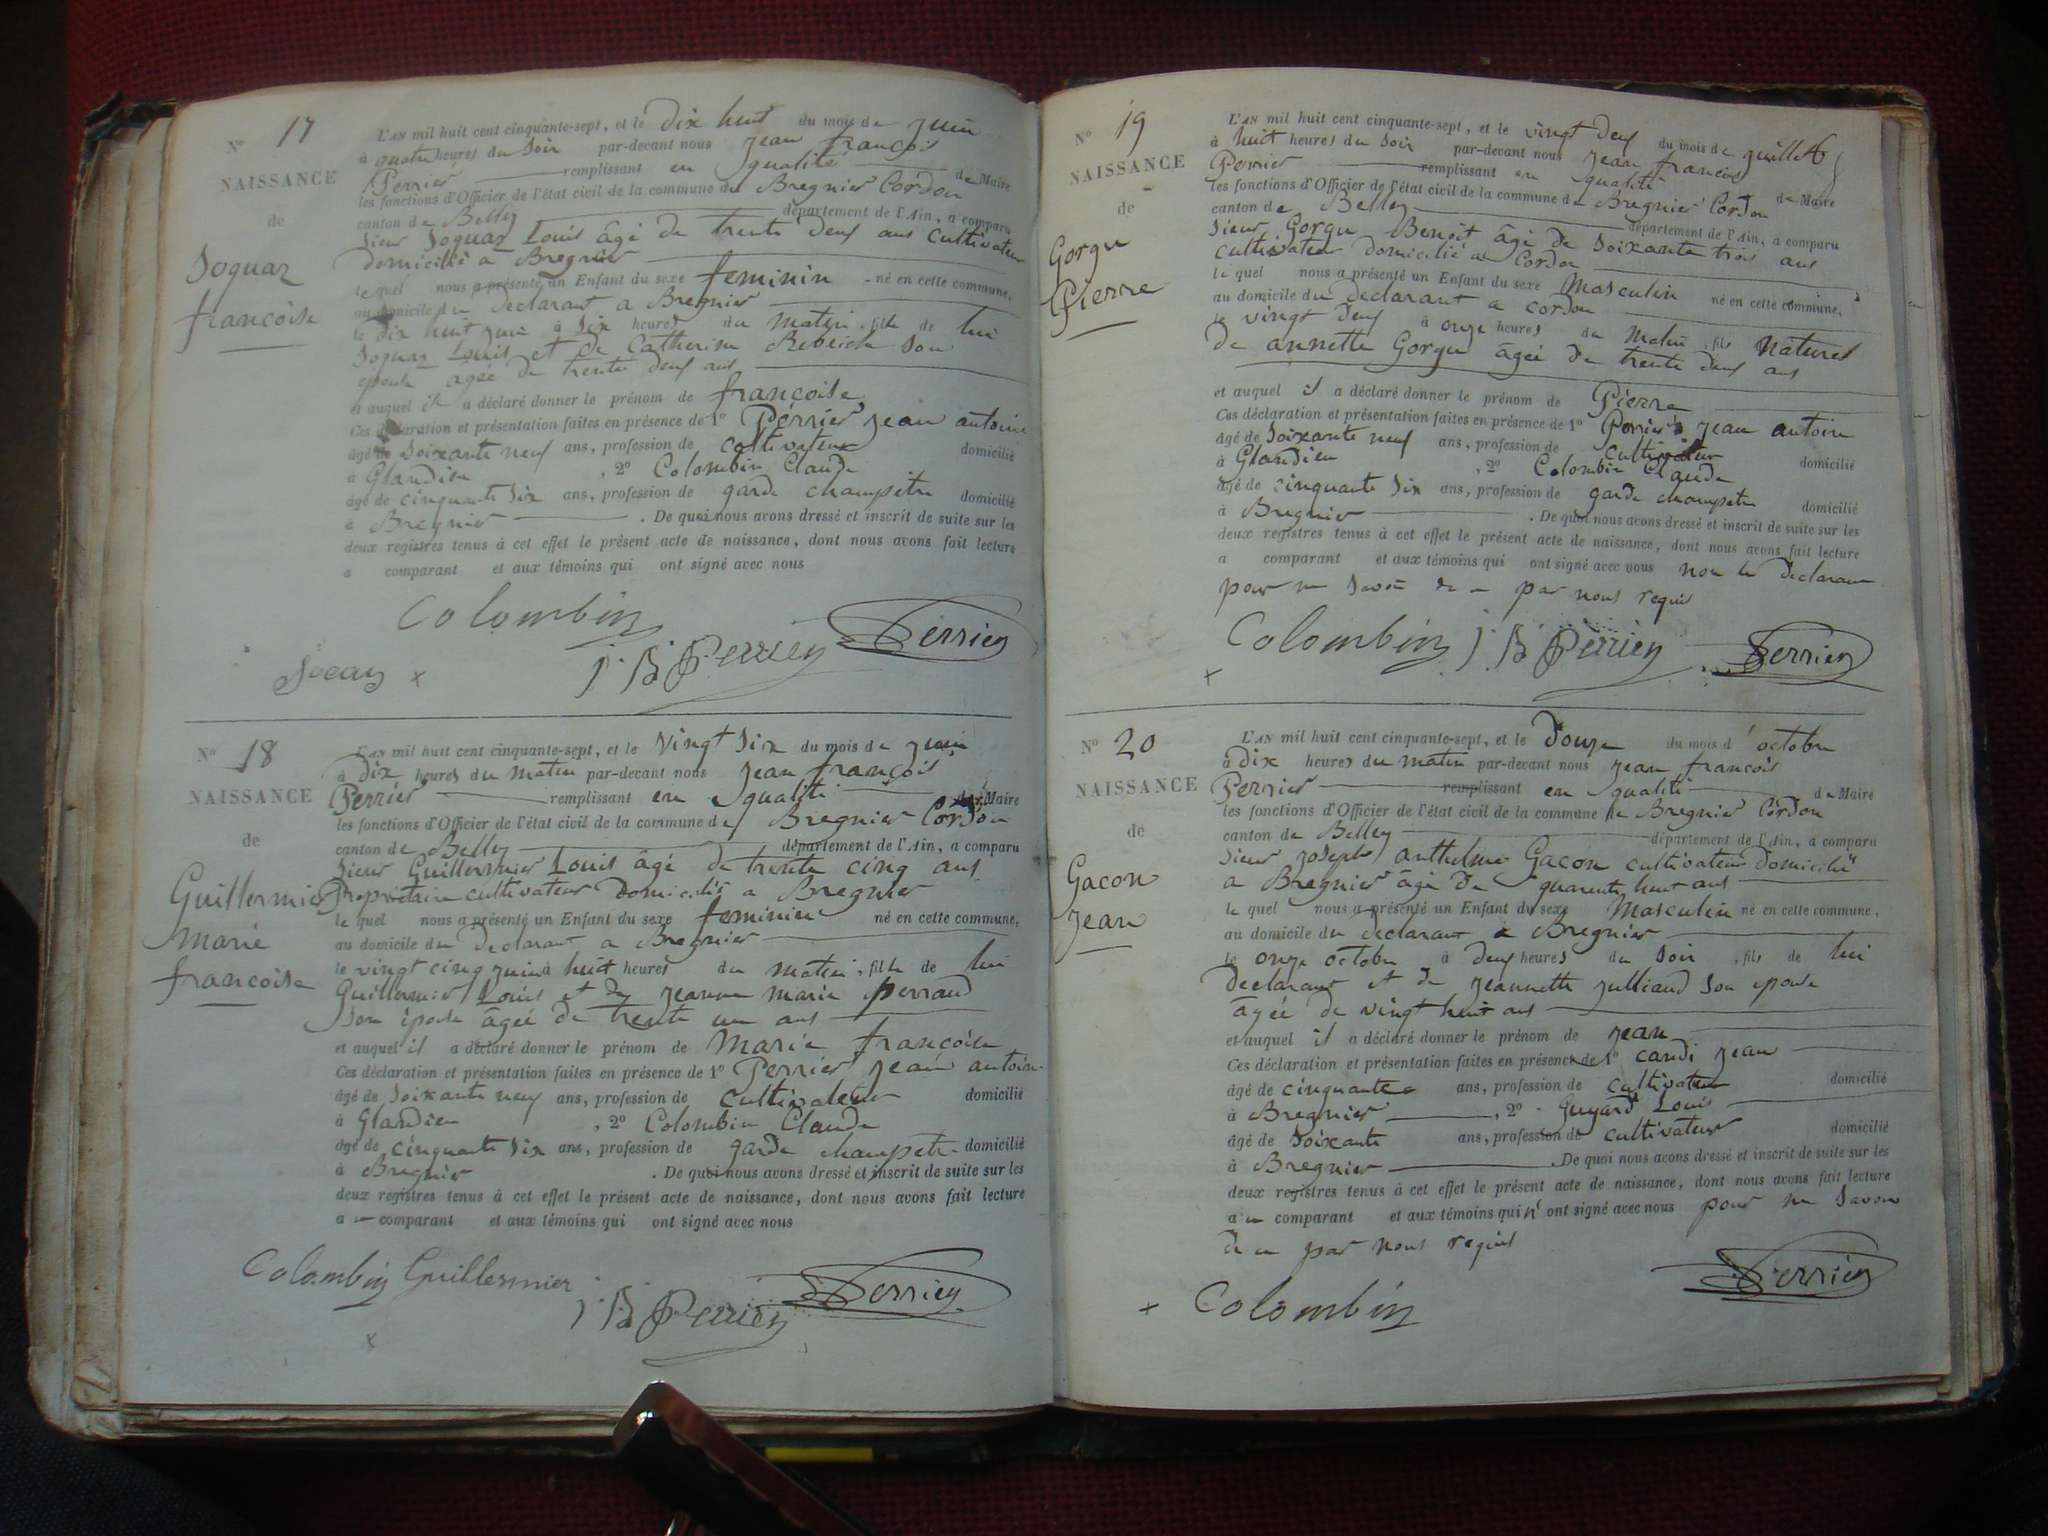 N° 17
NAISSANCE
de
Soquaz
françoise
L'AN mil huit cent cinquante-sept, et le dix huit du mois de juin
à quatre heures du Soir par-devant nous jean françois
Perrier remplissant en qualité de Maire
les fonctions d'Officier de l'état civil de la commune de Bregnier Cordon
canton de Belley département de l'Ain, a comparu
Sieur Soquaz Louis âgé de trente deux ans cultivateur
domicilié a Bregnier
le quel nous a présenté un Enfant du sexe feminin né en cette commune,
au domicile du declarant a Bregnier
le dix huit juin à Six heures du matin, fille de lui
Soquaz Louis et de Catherine son
épouse agée de trente deux ans
et auquel il a déclaré donner le prénom de françoise
Ces déclaration et présentation faites en présence de 1° Perrier jean antoine
âgé de Soixante neuf ans, profession de cultivateur domicilié
à Glandieu , 2° Colombin Claude
âgé de cinquante Six ans, profession de garde champetre domicilié
à Bregnier . De quoi nous avons dressé et inscrit de suite sur les
deux registres tenus à cet effet le présent acte de naissance, dont nous avons fait lecture
a comparant et aux témoins qui ont signé avec nous
Colombin
Perrier
J B Perrier
Socay x
N° 18
NAISSANCE
de
Guillermier
marie
françoise
L'AN mil huit cent cinquante-sept, et le vingt Six du mois de juin
à dix heures du matin par-devant nous jean françois
Perrier remplissant en qualité de Maire
les fonctions d'Officier de l'état civil de la commune de Bregnier Cordon
canton de Belley département de l'Ain, a comparu
Sieur Guillermier Louis âgé de trente cinq ans
Propriétaire cultivateur domicilié a Bregnier
le quel nous a présenté un Enfant du sexe feminin né en cette commune,
au domicile du declarant a Bregnier
le vingt cinq juin à huit heures du matin, fille de lui
Guillermier Louis et de jeanne marie perraud
son épouse âgée de trente un ans
et auquel il a déclaré donner le prénom de Marie françoise
Ces déclaration et présentation faites en présence de 1° Perrier jean antoine
âgé de Soixante neuf ans, profession de cultivateur domicilié
à Glandieu , 2° Colombin Claude
âgé de cinquante Six ans, profession de garde champetre domicilié
à Bregnier . De quoi nous avons dressé et inscrit de suite sur les
deux registres tenus à cet effet le présent acte de naissance, dont nous avons fait lecture
a u comparant et aux témoins qui ont signé avec nous
Colombin Guillermier
J B Perrier
Perrier
x
N° 19
NAISSANCE
de
Gorgu
Pierre
L'AN mil huit cent cinquante-sept, et le vingt deux du mois de juillet
à huit heures du Soir par-devant nous jean françois
Perrier remplissant en qualité de Maire
les fonctions d'Officier de l'état civil de la commune de Bregnier Cordon
canton de Belley département de l'Ain, a comparu
Sieur Gorgu Benoit âgé de Soixante trois ans
cultivateur domicilié a Cordon
le quel nous a présenté un Enfant du sexe Masculin né en cette commune,
au domicile du declarant a cordon
le vingt deux à onze heures du matin, fils naturel
de annette Gorgu âgée de trente deux ans
et auquel il a déclaré donner le prénom de Pierre
Ces déclaration et présentation faites en présence de 1° Perrier jean antoine
âgé de Soixante neuf ans, profession de cultivateur domicilié
à Glandieu , 2° Colombin Claude
âgé de cinquante Six ans, profession de garde champetre domicilié
à Bregnier . De quoi nous avons dressé et inscrit de suite sur les
deux registres tenus à cet effet le présent acte de naissance, dont nous avons fait lecture
a comparant et aux témoins qui ont signé avec nous non le declarant
pour ne savoir de ce par nous requis
Colombin J B Perrier
Perrier
x
N° 20
NAISSANCE
de
Gacon
Jean
L'AN mil huit cent cinquante-sept, et le Douze du mois d'octobre
à dix heures du matin par-devant nous jean françois
Perrier remplissant en qualité de Maire
les fonctions d'Officier de l'état civil de la commune de Bregnier Cordon
canton de Belley département de l'Ain, a comparu
Sieur joseph anthelme Gacon cultivateur domicilié
a Bregnier âgé de quarente huit ans
le quel nous a présenté un Enfant du sexe Masculin né en cette commune,
au domicile du declarant a Bregnier
le onze octobre à deux heures du Soir, fils de lui
declarant et de jeannette julliand son épouse
âgée de vingt huit ans
et auquel il a déclaré donner le prénom de jean
Ces déclaration et présentation faites en présence de 1° candi jean
âgé de cinquante ans, profession de cultivateur domicilié
à Bregnier , 2° Guyard Louis
âgé de Soixante ans, profession de cultivateur domicilié
à Bregnier . De quoi nous avons dressé et inscrit de suite sur les
deux registres tenus à cet effet le présent acte de naissance, dont nous avons fait lecture
a u comparant et aux témoins qui n'ont signé avec nous pour ne savoir
de ce par nous requis
Perrier
x Colombin